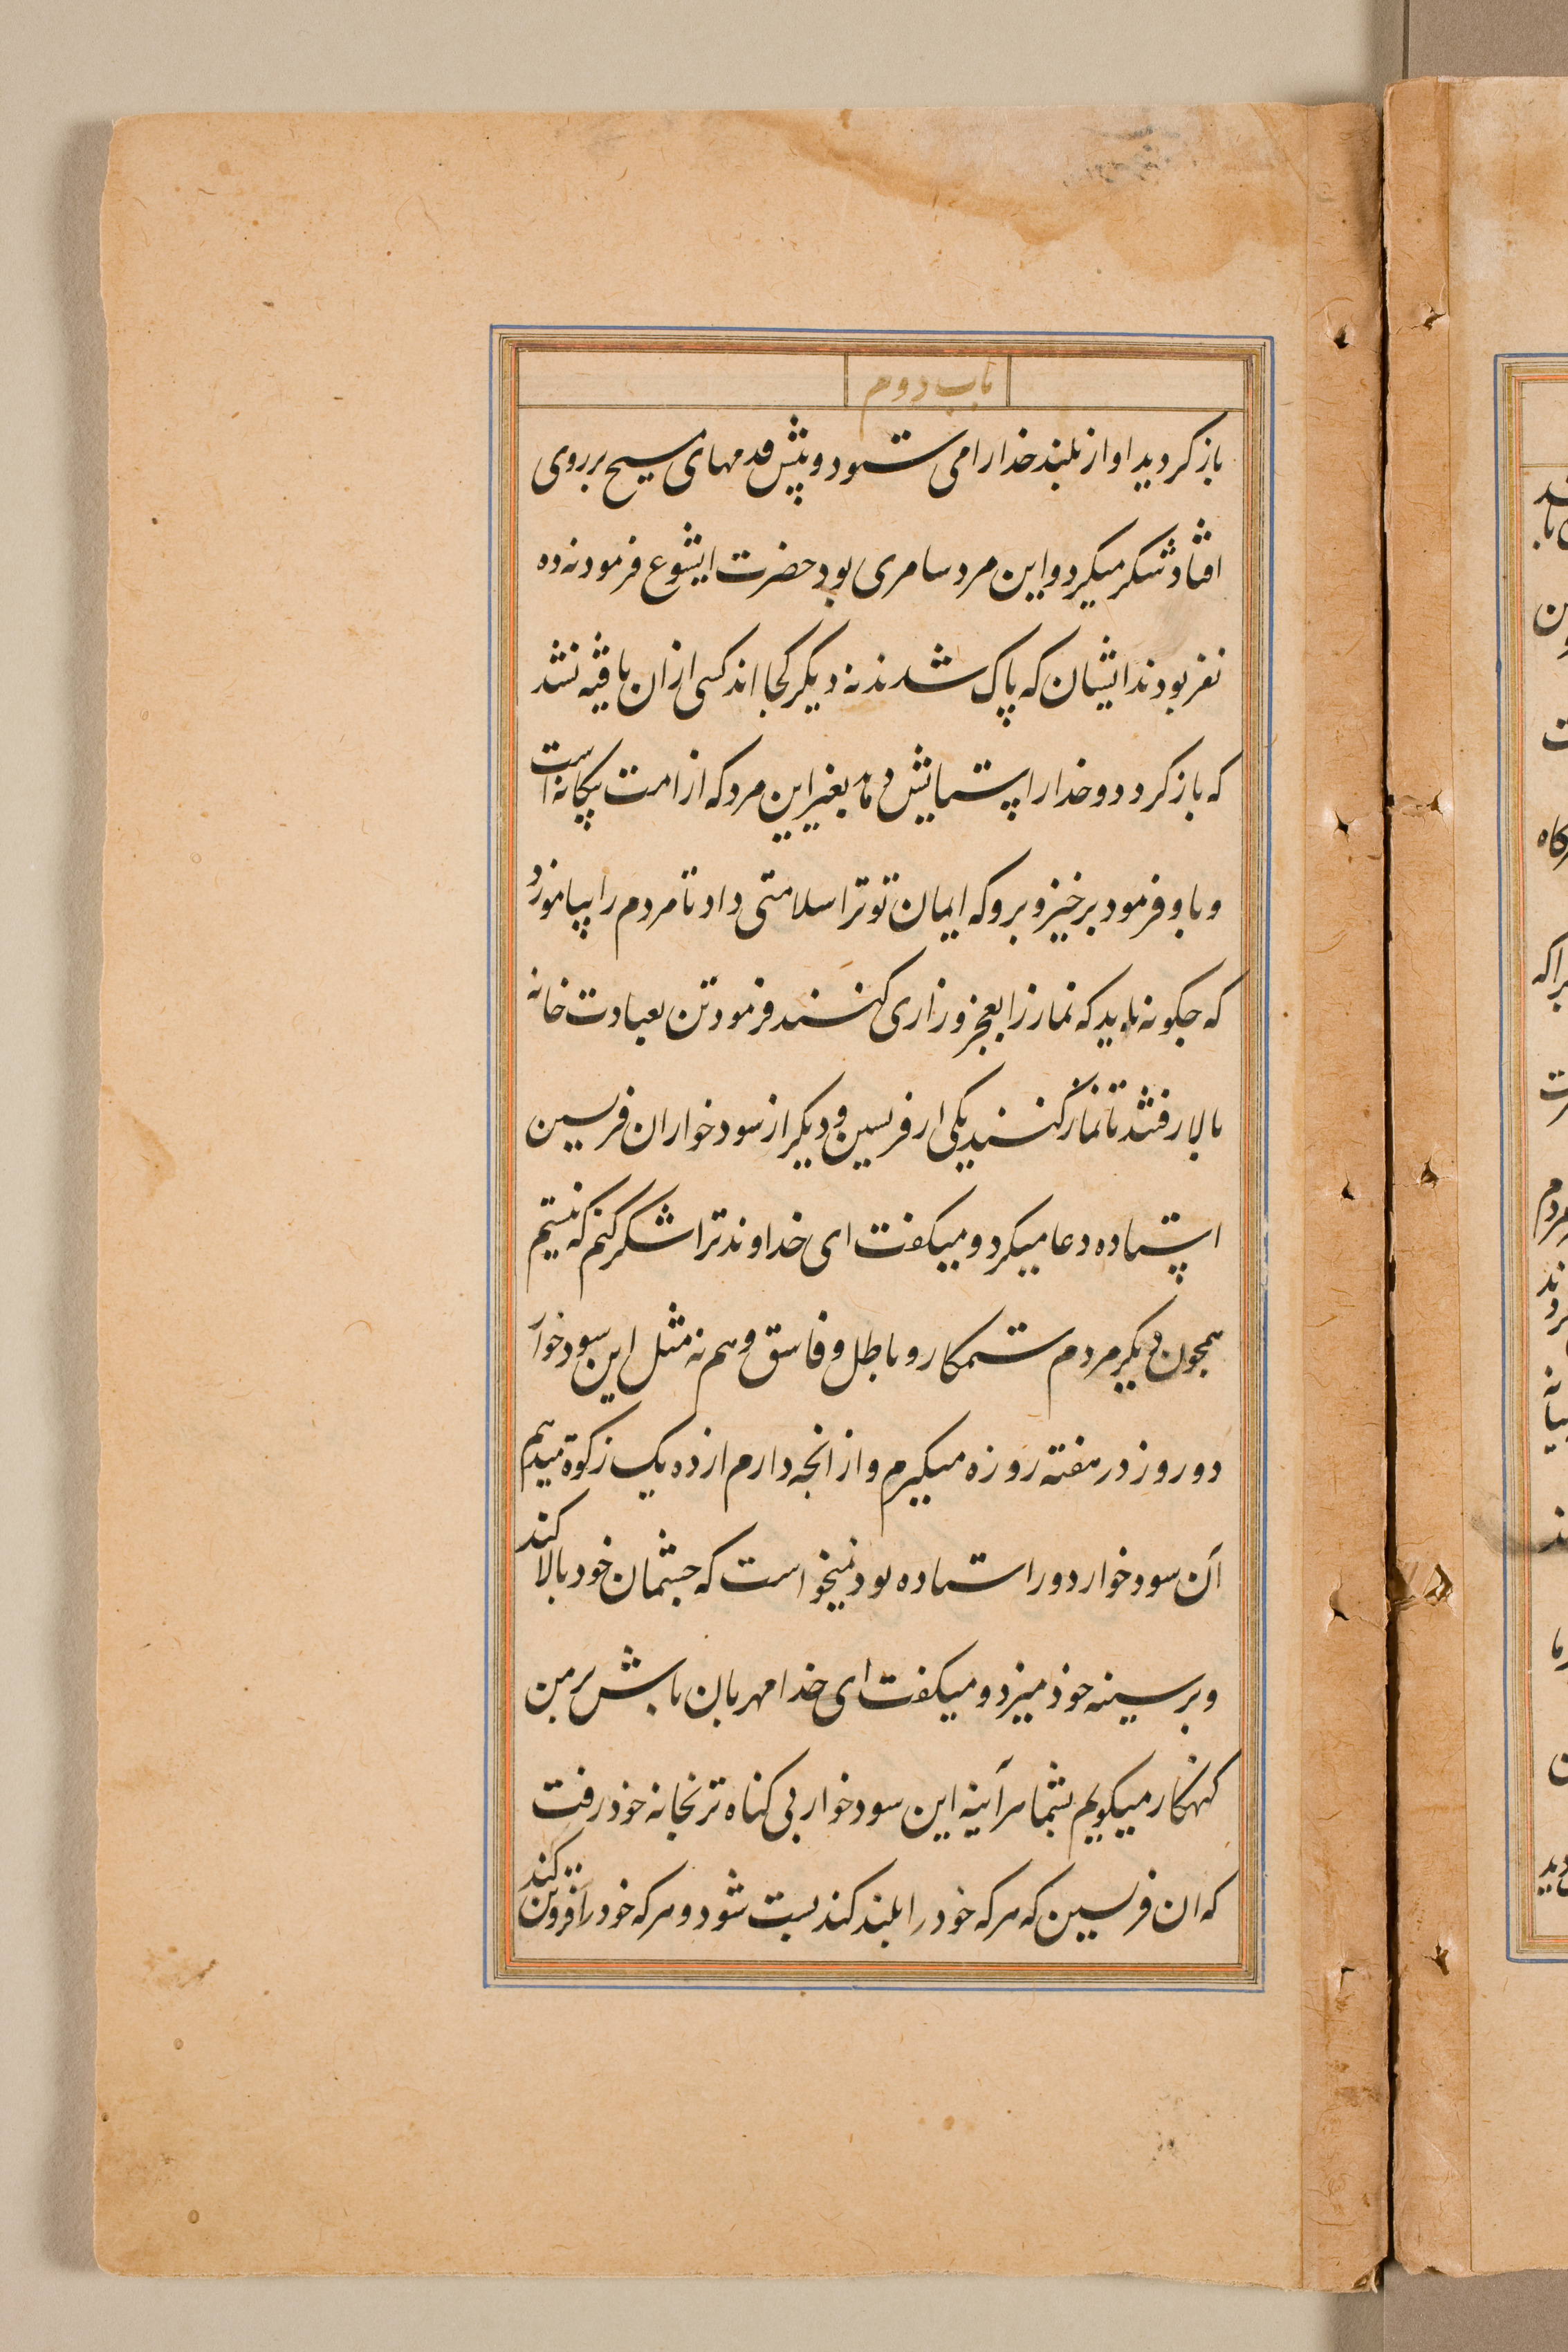 باب دوم
باز کردید اواز بلند خدا را می ستود و پیش قدمهای مسیح بر روی
افتاد شکر میکرد و این مرد سامری بود حضرت ایشوع فرمود نه ده
نفر بودند ایشان که پاک شدند نه دیکر کجا اند کسی از ان یافته نشد
که باز کردد و خدا را ستایش دهد بغیر این مرد که از امت بیکانه است
و باو فرمود برخیز و برو که ایمان تو ترا سلامتی داد تا مردم را بیاموزد
که جکونه باید که نماز را بعجز و زاری کنند فرمود تن بعبادت خانه
بالا رفتند تا نماز کنند یکی از فریسین و دیکر از سود خواران فریسین
استاده دعا میکرد و میکفت ای خداوند ترا شکر کنم که نیستم
همجون دیکر مردم ستمکار و باطل و فاسق و هم نه مثل این سود خوار
دو روز در هفته روزه میکیرم و از انجه دارم از ده یک زکوة میدهم
آن سود خوار دور استاده بود نمیخواست که جشمان خود بالا کند
و بر سینه خود میزد و میکفت ای خدا مهربان باش بر من
کنهکار میکویم بشما هرآینه این سود خوار بی کناه تر بخانه خود رفت
که ان فریسین که هر که خود را بلند کند بست شود و هر که خود را فروتن کند